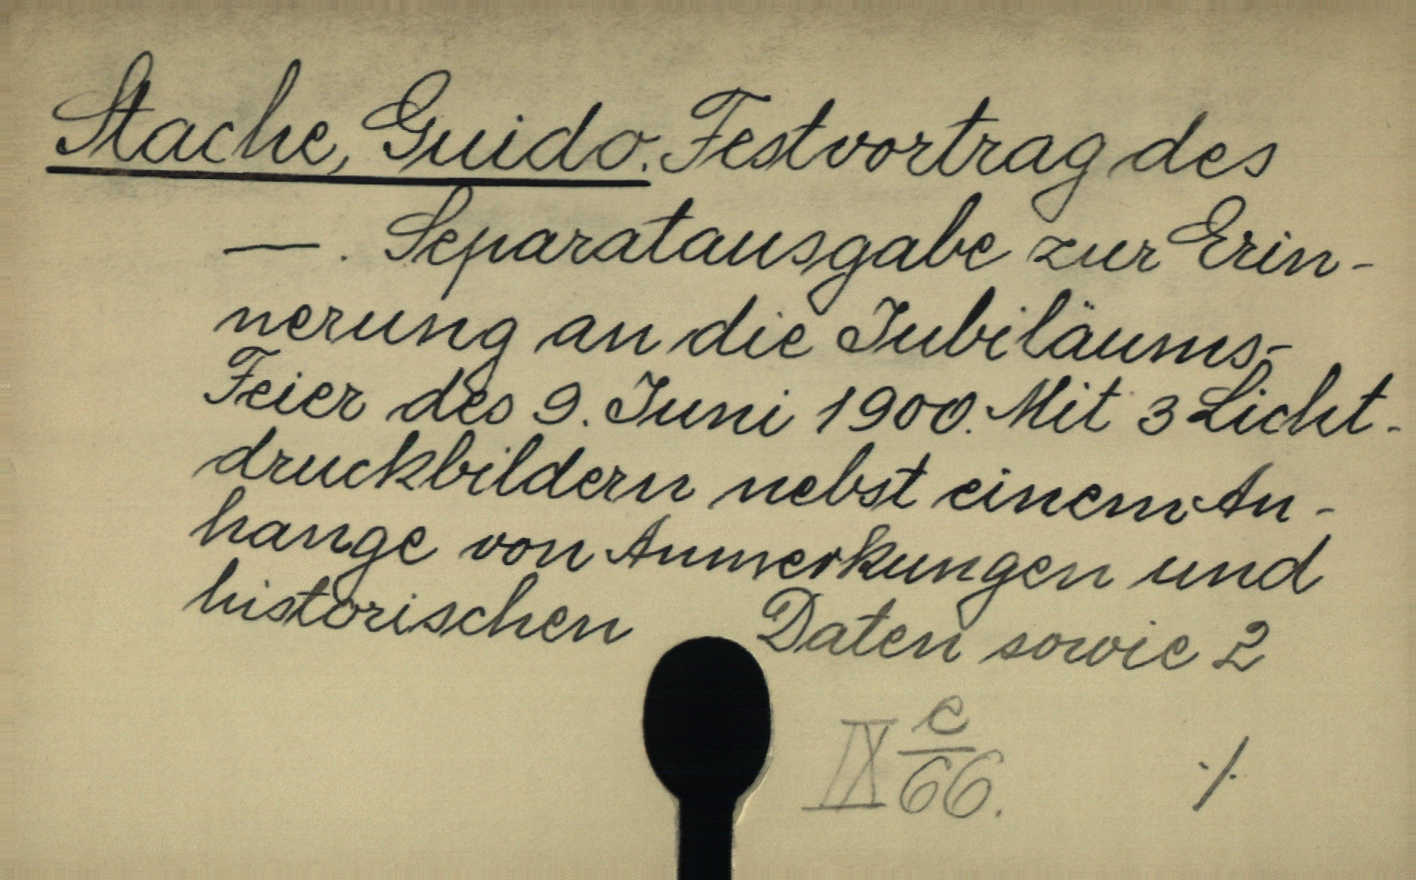 Stache, Guido. Festvortrag des
—. Separatausgabe zur Erin-
nerung an die Jubiläums-
Feier des 9. Juni 1900. Mit 3 Licht-
druckbildern nebst einem An-
hange von Anmerkungen und
historischen Daten sowie 2
IX e/66.
./.